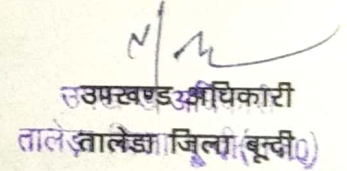 उपखण्ड अधिकारी
तालेडा जिला (बून्दी)